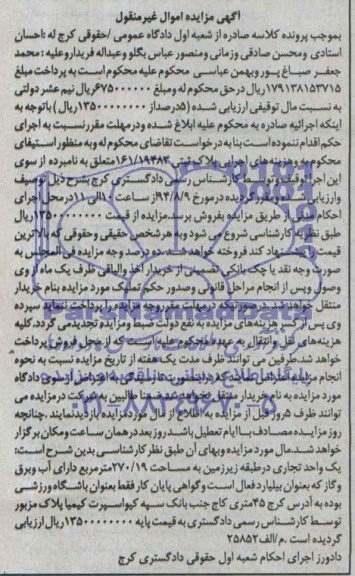 آگهی مزایده اموال غیرمنقول
بموجب پرونده کلاسه صادره از شعبه اول دادگاه عمومی /حقوقی کرج له :احسان
استادی ومحسن صادقی وزمانی ومنصور عباس بگلو وعبداله فریدار وعلیه : محمد
جعفر صباغ پور وبهمن عباسی محکوم علیه محکوم است به پرداخت مبلغ
۱۷۹۱۳۸۱۵۳۷۱۵ ریال در حق محکوم له ومبلغ ۶۷۵۰۰۰۰۰۰ ریال نیم عشر دولتی
به نسبت مال توقیفی ارزیابی شده (۵درصداز ۱۳۵۰۰۰۰۰۰۰۰ ریال ) باتوجه به
اینکه اجرائیه صادره به محکوم علیه ابلاغ شده ودرمهلت مقرر نسبت به اجرای
حکم اقدام ننموده است بنا به درخواست تقاضای محکوم له و به منظور استیفای
محکوم به وهزینه های اجرایی پلاک ثبتی ۱۶۱/۱۹۴۸۳ متعلق به نامبرده از سوی
این اجرا توقیف و توسط کارشناس رسمی دادگستری کرج بشرح ذیل توصیف
وارزیابی شده ومقرر گردیده در مورخ ۹۴/۸/۹ از ساعت ۱۰ الی ۱۱ در محل اجرای
احکام مدنی از طریق مزایده بفروش برسد.مزایده از قیمت ۱۳۵۰۰۰۰۰۰۰۰ ریال
طبق نظر به کارشناسی شروع می شود و به هر شخص حقیقی وحقوقی که بالاترین
قیمت را پیشنهاد کند فروخته خواهد شد.ده درصد وجه مزایده فی المجلس به
صورت وجه نقد یا چک بانکی تضمینی از خریدار اخذ والباقی ظرف یک ماه از وی
وصول وپس از انجام مراحل قانونی وصدور حکم تملیک مورد مزایده بنام خریدار
منتقل خواهد شد.در صورتیکه در مهلت مقرر وجه مزایده را پرداخت ننماید سپرده
وی پس از کسر هزینه های مزایده به نفع دولت ضبط ومزایده تجدید می گردد.کلیه
هزینه های نقل وانتقال به عهده محکوم علیه است که از محل فروش پرداخت
خواهد شد.طرفین می توانند ظرف مدت یک هفته از تاریخ مزایده نسبت به نحوه
انجام مزایده اعتراض نمایند که در اینصورت تا رسیدگی به اعتراض از سوی دادگاه
مورد مزایده به نام خریدار منتقل نخواهد شد.ضمنا طالبین به شرکت در مزایده می
توانند ظرف ۵روز قبل از مزایده به اطلاع از مال مورد مزایده بازدید نمایند .چنانچه
روز مزایده مصادف با ایام تعطیل باشد روز بعد در همان ساعت ومکان برگزار
خواهد شد.مال مورد مزایده وبهای آن طبق نظر کارشناسی بدین شرح است:
یک واحد تجاری در طبقه زیرزمین به مساحت ۲۷۰/۱۹ مترمربع دارای آب وبرق
وگاز که بعنوان بیلیارد فعال است وگواهی پایان کار فقط بعنوان باشگاه ورزشی
بوده به آدرس کرج ۴۵متری کاج جنب بانک سپه کیواسپرت کیمیا پلاک مزبور
توسط کارشناس رسمی دادگستری به قیمت پایه ۱۳۵۰۰۰۰۰۰۰۰ ریال ارزیابی
گردیده است .م/الف ۲۵۸۵۲
دادورز اجرای احکام شعبه اول حقوقی دادگستری کرج
ParsNamadData